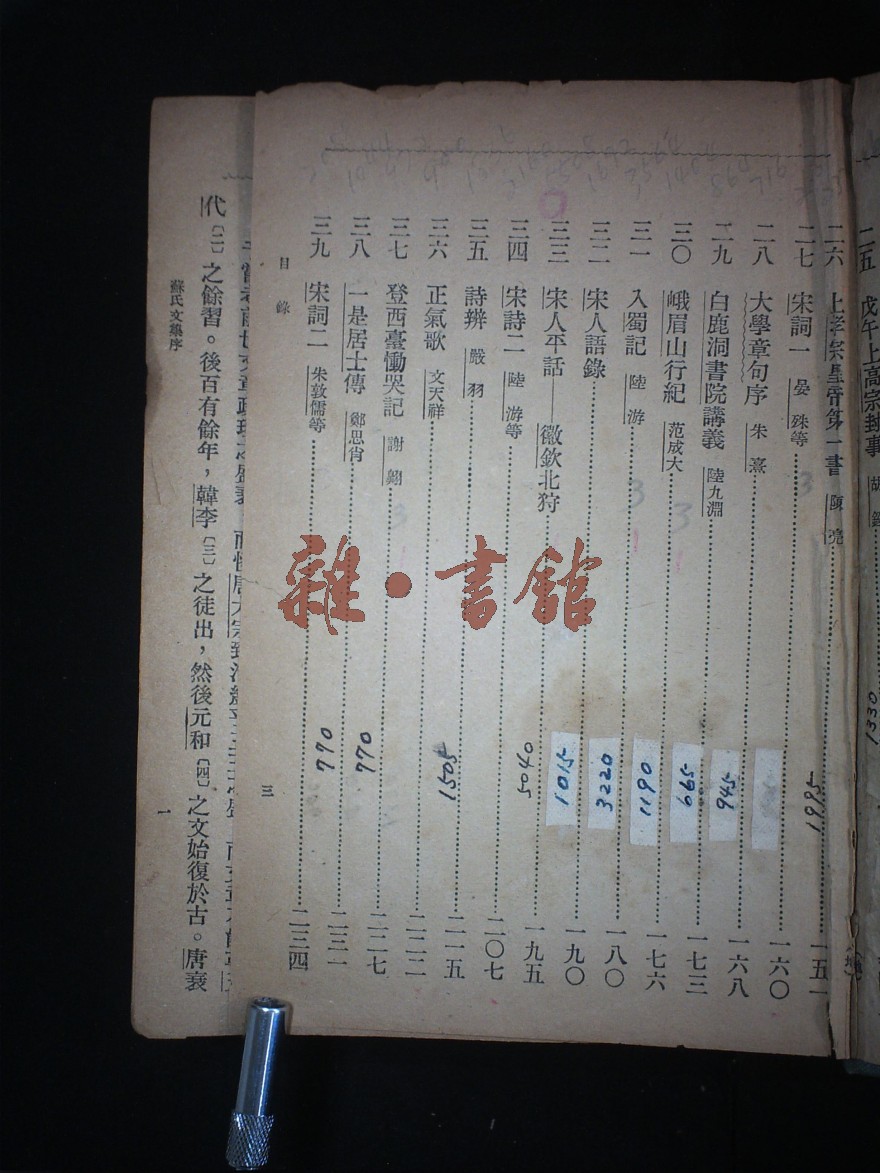 二五 戊午上高宗封事 胡
1330
二六 上孝宗皇帝第一書 陳亮 一五一
二七 宋詞一 晏殊等 一六〇
1995
二八 大學章句序 朱熹 一六八
二九 白鹿洞書院講義 陸九淵 一七三
945
三〇 峨眉山行紀 范成大 一七六
665
三一 入蜀記 陸游 一八〇
1190
三二 宋人語錄 一九〇
3220
三三 宋人平話——徽欽北狩 一九五
1015
三四 宋詩二 陸游等 二〇七
0405
三五 詩辨 嚴羽 二一五
三六 正氣歌 文天祥 二二二
1505
三七 登西臺慟哭記 謝翱 二二七
三八 一是居士傳 鄭思肖 二三一
770
三九 宋詞二 朱敦儒等 二三四
770
目錄 三
雜·書館
代〔二〕之餘習。後百有餘年，韓李〔三〕之徒出，然後元和〔四〕之文始復於古。唐衰
蘇氏文集序 一